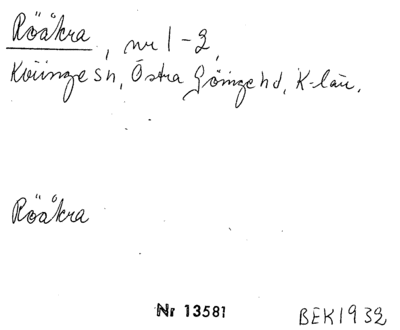 Röåkra, nr 1-2,
Kviinge sn, Östra Göinge hd, K-län.
Röåkra
Nr 13581
BEK1932